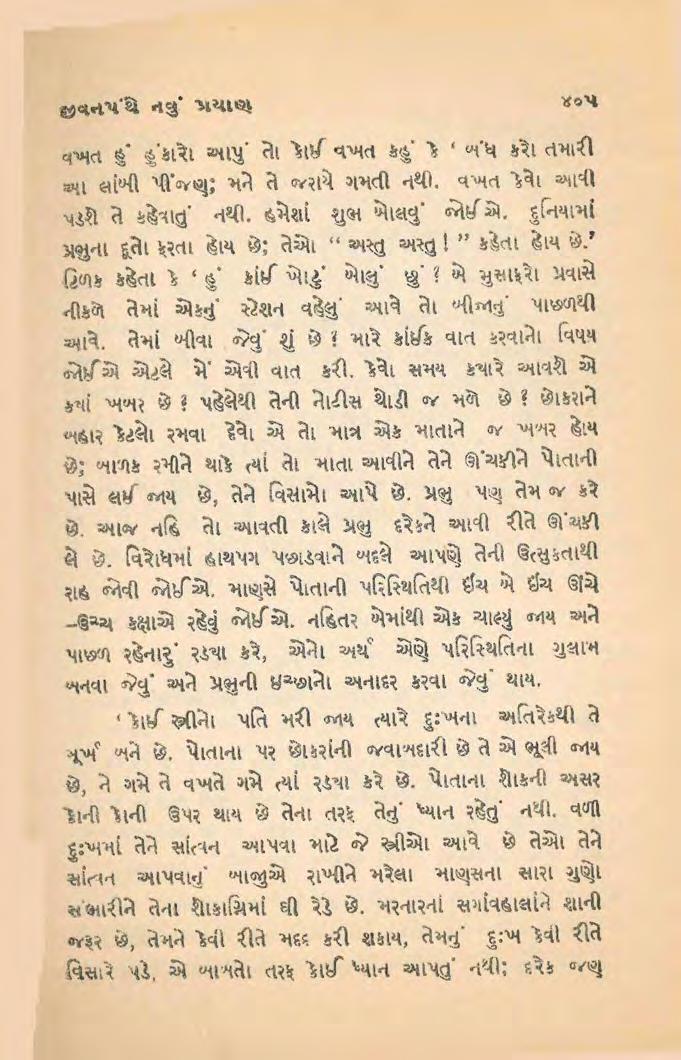 જીવનપંથે નવું પ્રયાણ ૪૦૫
વખત હું હુંકારો આપું તો કોઈ વખત કહું કે ‘ બંધ કરો તમારી
આ લાંબી પીંજણ; મને તે જરાયે ગમતી નથી. વખત કેવો આવી
પડશે તે કહેવાતું નથી. હમેશાં શુભ બોલવું જોઈએ. દુનિયામાં
પ્રભુના દૂતો ફરતા હોય છે; તેઓ “ અસ્તુ અસ્તુ ! ” કહેતા હોય છે.’
ટિળક કહેતા કે ‘ હું કાંઈ ખોટું બોલું છું ? બે મુસાફરો પ્રવાસે
નીકળે તેમાં એકનું સ્ટેશન વહેલું આવે તો બીજાનું પાછળથી
આવે. તેમાં બીવા જેવું શું છે ? મારે કાંઈક વાત કરવાનો વિષય
જોઈએ એટલે મેં એવી વાત કરી. કેવો સમય ક્યારે આવશે એ
ક્યાં ખબર છે ? પહેલેથી તેની નોટીસ થોડી જ મળે છે ? છોકરાને
બહાર કેટલો રમવા દેવો એ તો માત્ર એક માતાને જ ખબર હોય
છે; બાળક રમીને થાકે ત્યાં તો માતા આવીને તેને ઊંચકીને પોતાની
પાસે લઈ જાય છે, તેને વિસામો આપે છે. પ્રભુ પણ તેમ જ કરે
છે. આજ નહિ તો આવતી કાલે પ્રભુ દરેકને આવી રીતે ઊંચકી
લે છે. વિરોધમાં હાથપગ પછાડવાને બદલે આપણે તેની ઉત્સુકતાથી
રાહ જોવી જોઈએ. માણસે પોતાની પરિસ્થિતિથી ઈંચ બે ઈંચ ઊંચે
–ઉચ્ચ કક્ષાએ રહેવું જોઈએ. નહિતર બેમાંથી એક ચાલ્યું જાય અને
પાછળ રહેનારું રડ્યા કરે, એનો અર્થ એણે પરિસ્થિતિના ગુલામ
બનવા જેવું અને પ્રભુની ઇચ્છાનો અનાદર કરવા જેવું થાય.
‘ કોઈ સ્ત્રીનો પતિ મરી જાય ત્યારે દુઃખના અતિરેકથી તે
મૂર્ખ બને છે. પોતાના પર છોકરાંની જવાબદારી છે તે એ ભૂલી જાય
છે, ને ગમે તે વખતે ગમે ત્યાં રડ્યા કરે છે. પોતાના શોકની અસર
કોની કોની ઉપર થાય છે તેના તરફ તેનું ધ્યાન રહેતું નથી. વળી
દુઃખમાં તેને સાંત્વન આપવા માટે જે સ્ત્રીઓ આવે છે તેઓ તેને
સાંત્વન આપવાનું બાજુએ રાખીને મરેલા માણસના સારા ગુણો
સંભારીને તેના શોકાગ્નિમાં ઘી રેડે છે. મરનારનાં સગાંવહાલાંને શાની
જરૂર છે, તેમને કેવી રીતે મદદ કરી શકાય, તેમનું દુઃખ કેવી રીતે
વિસારે પડે, એ બાબતો તરફ કોઈ ધ્યાન આપતું નથી; દરેક જણ